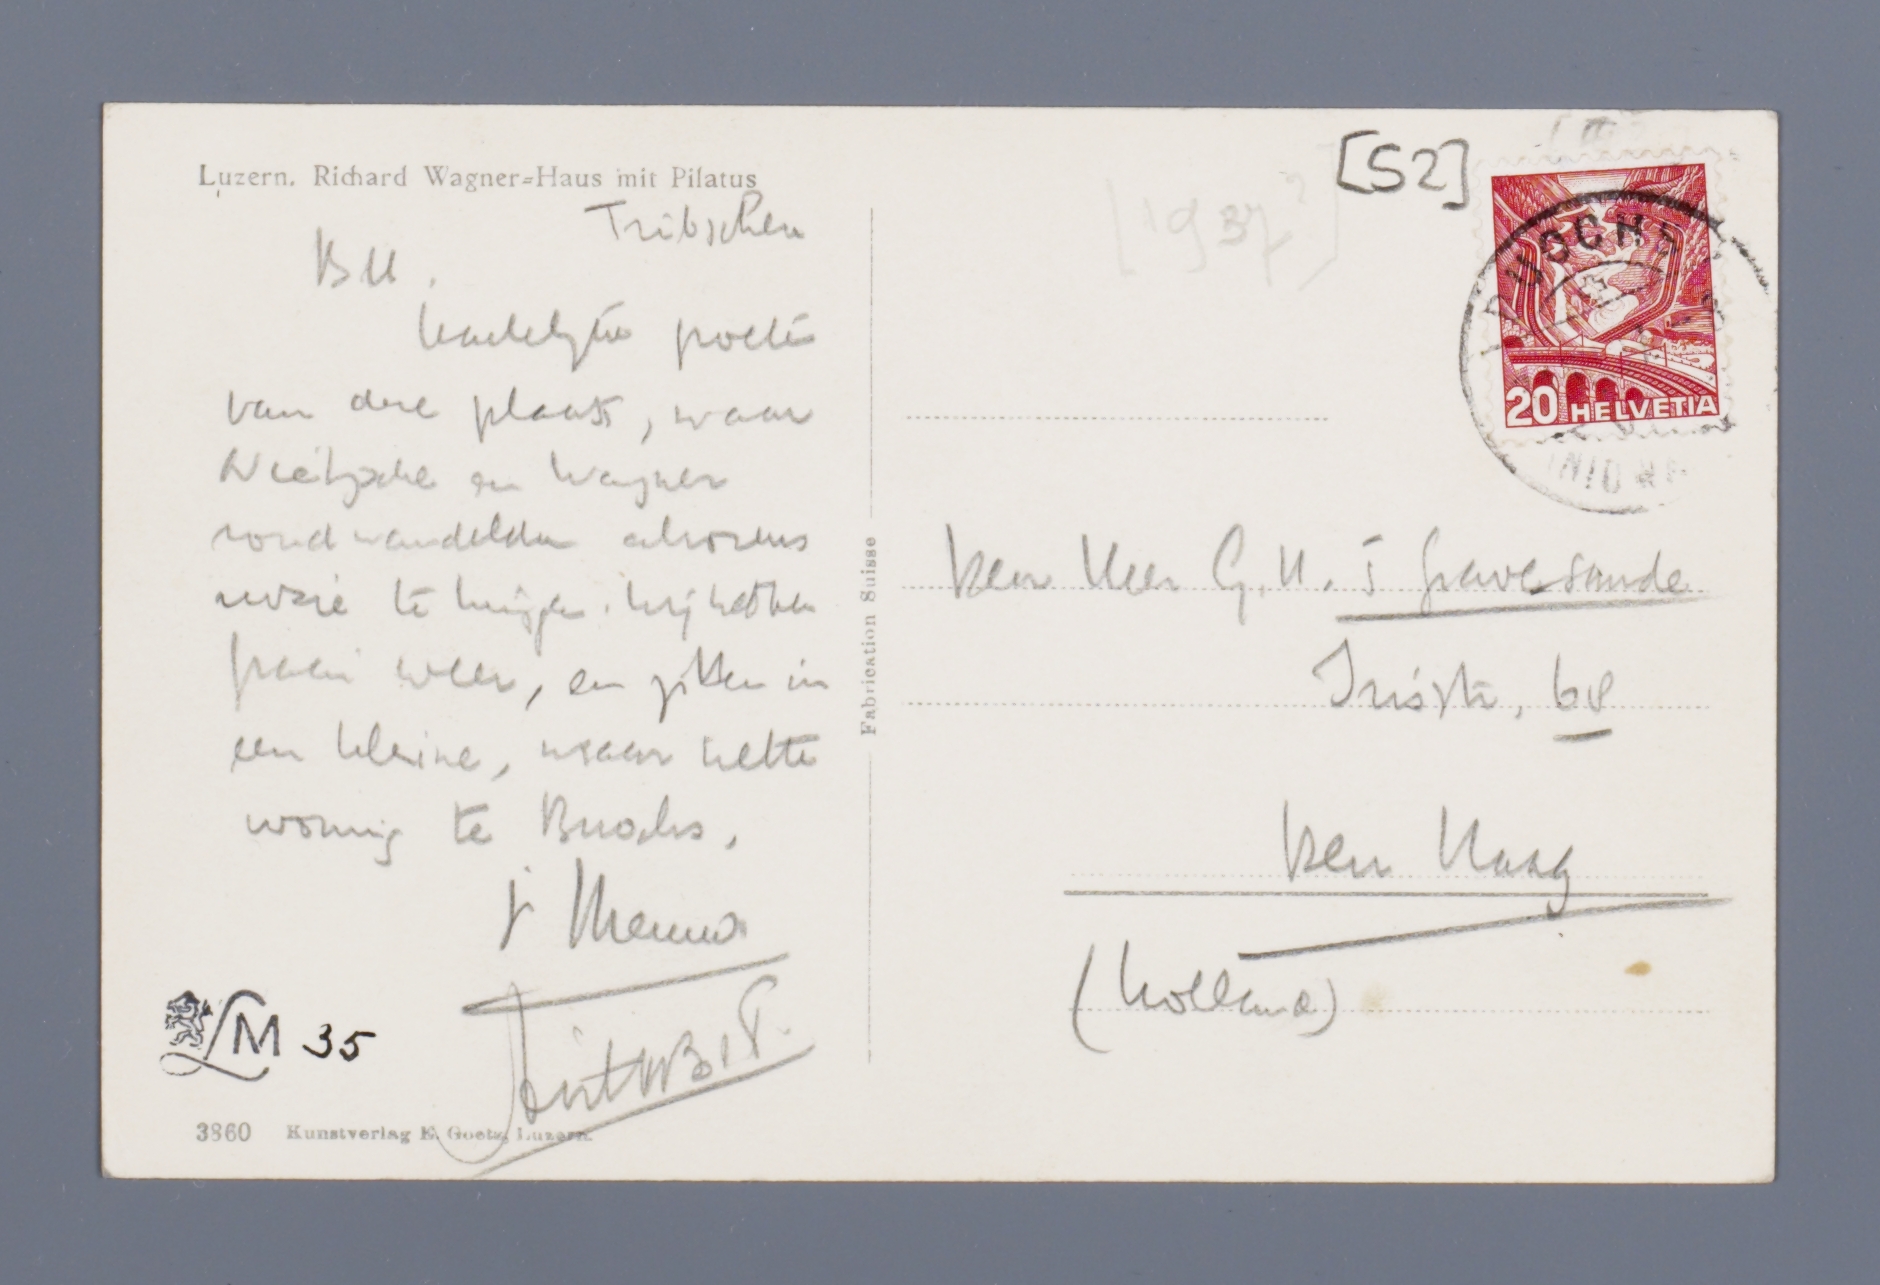 Luzern. Richard Wagner-Haus mit Pilatus
Tribschen
B.H.
Hartelijke groeten
van deze plaats, waar
Nietzsche en Wagner
rondwandelden alvorens
ruzie te krijgen. Wij hebben
fraai weer, en zitten in
een kleine, maar nette
woning te Buochs.
t. Menno
LM 35
3860 Kunstverlag E. Goetz, Luzern.
Fabrication Suisse
[1937?]
[S2]
BUOCHS
20 HELVETIA
Den Heer G.H. 's Gravesande
Irisstr. 68
Den Haag
(Holland)